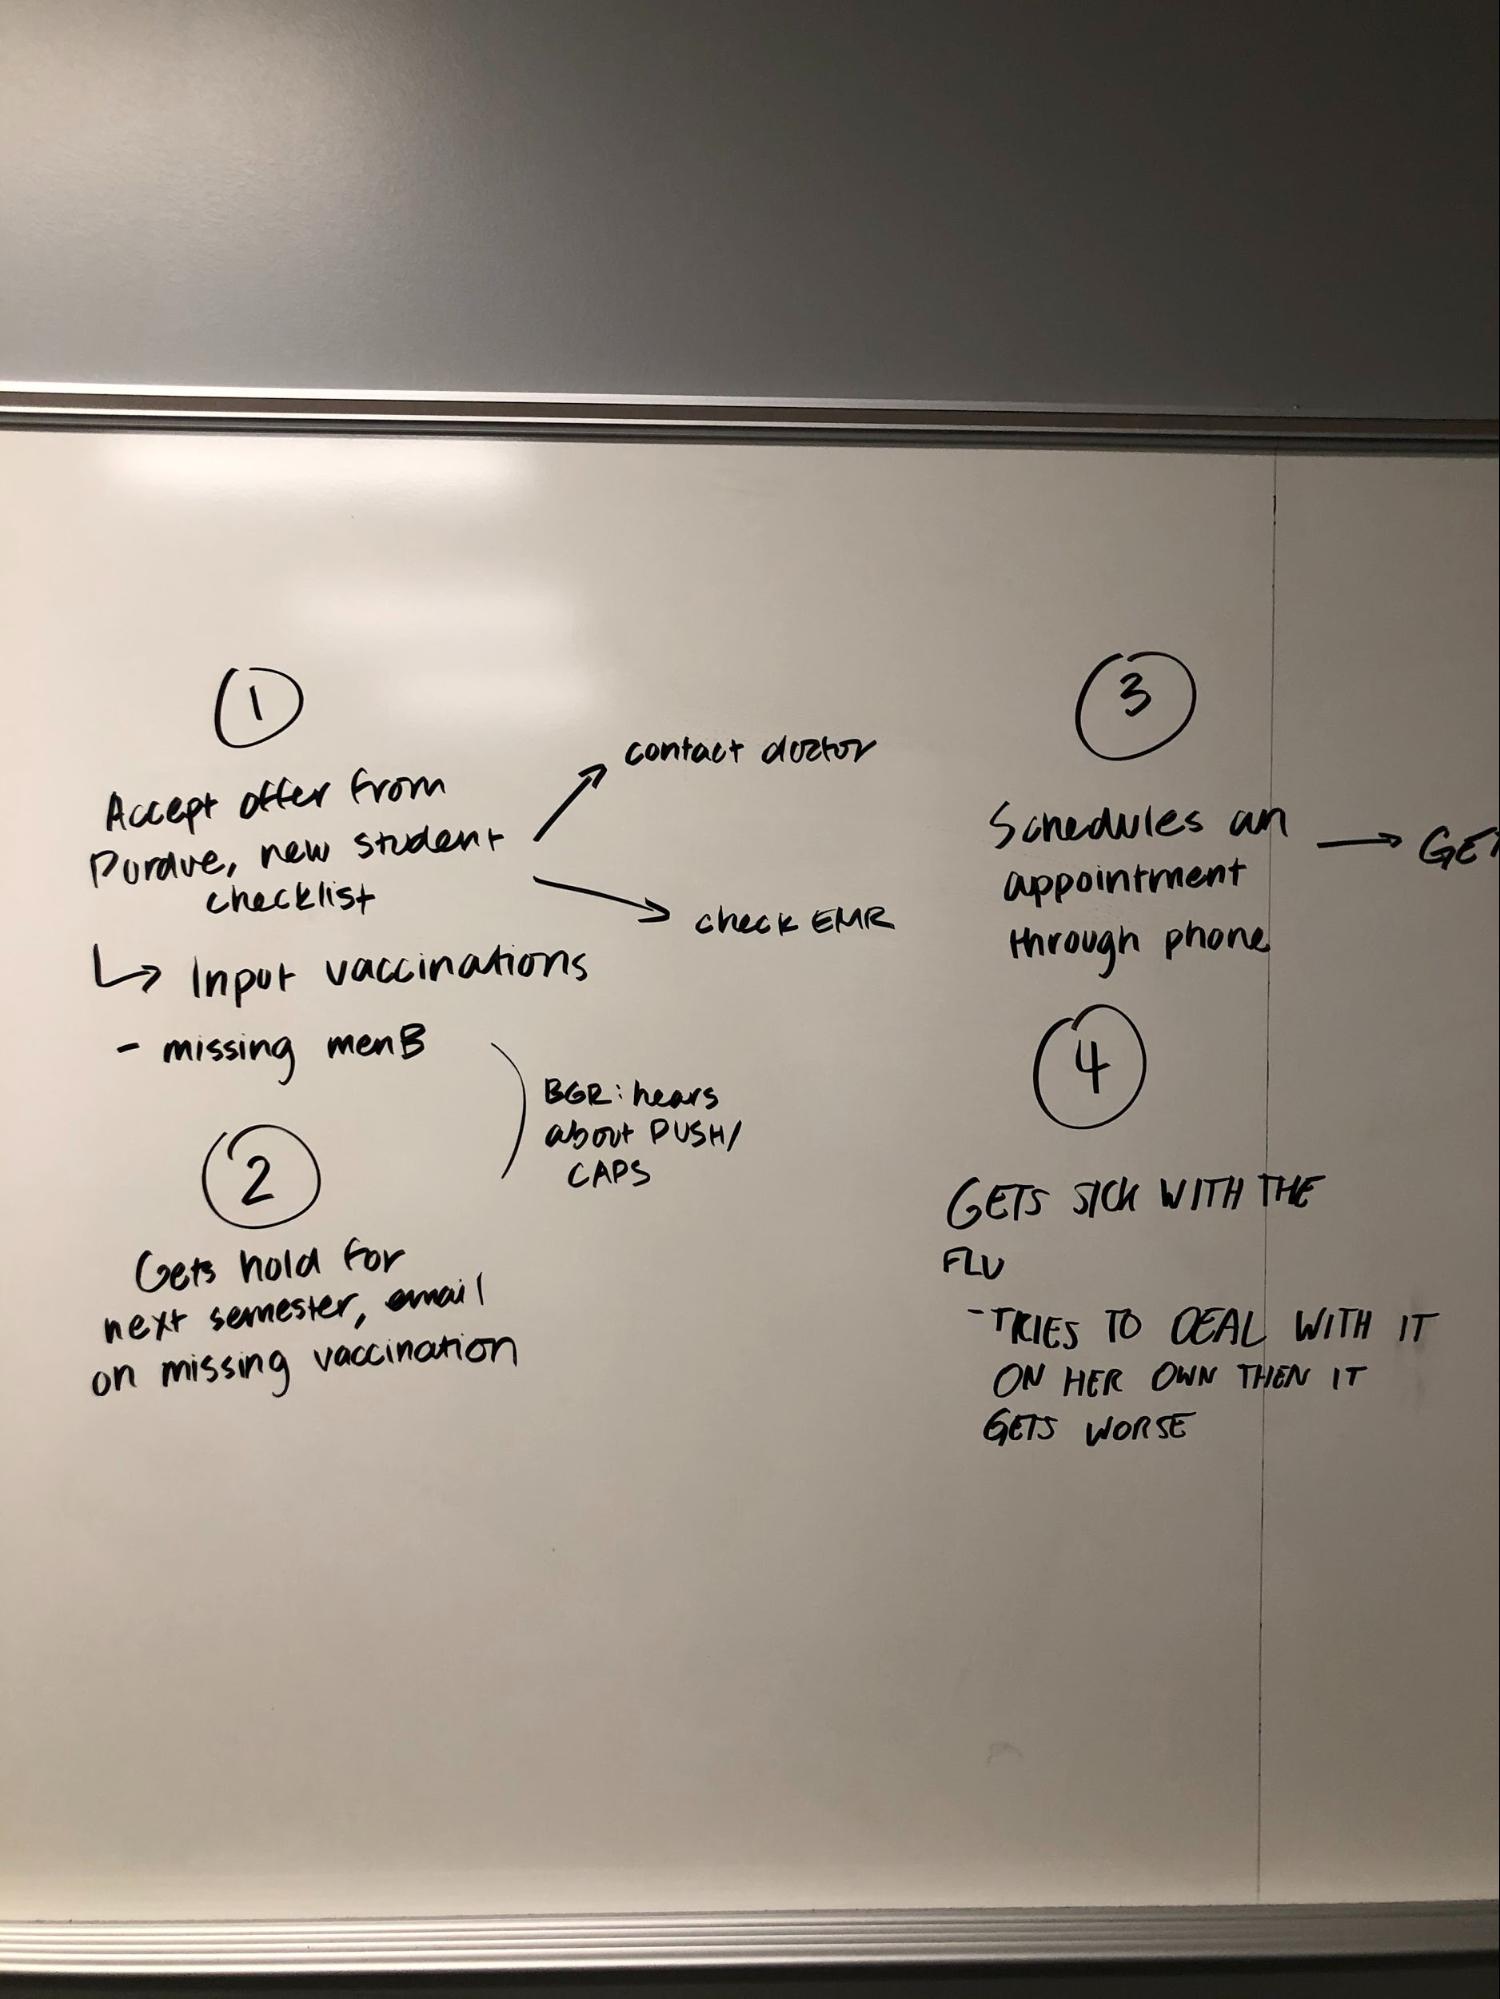 1
Accept offer from
Purdue, new student
checklist
contact doctor
check EMR
Input vaccinations
- missing menB
BGR: hears
about PUSH/
CAPS
2
Gets hold for
next semester, email
on missing vaccination
3
Schedules an
appointment
through phone
GET
4
GETS SICK WITH THE
FLU
- TRIES TO DEAL WITH IT
ON HER OWN THEN IT
GETS WORSE